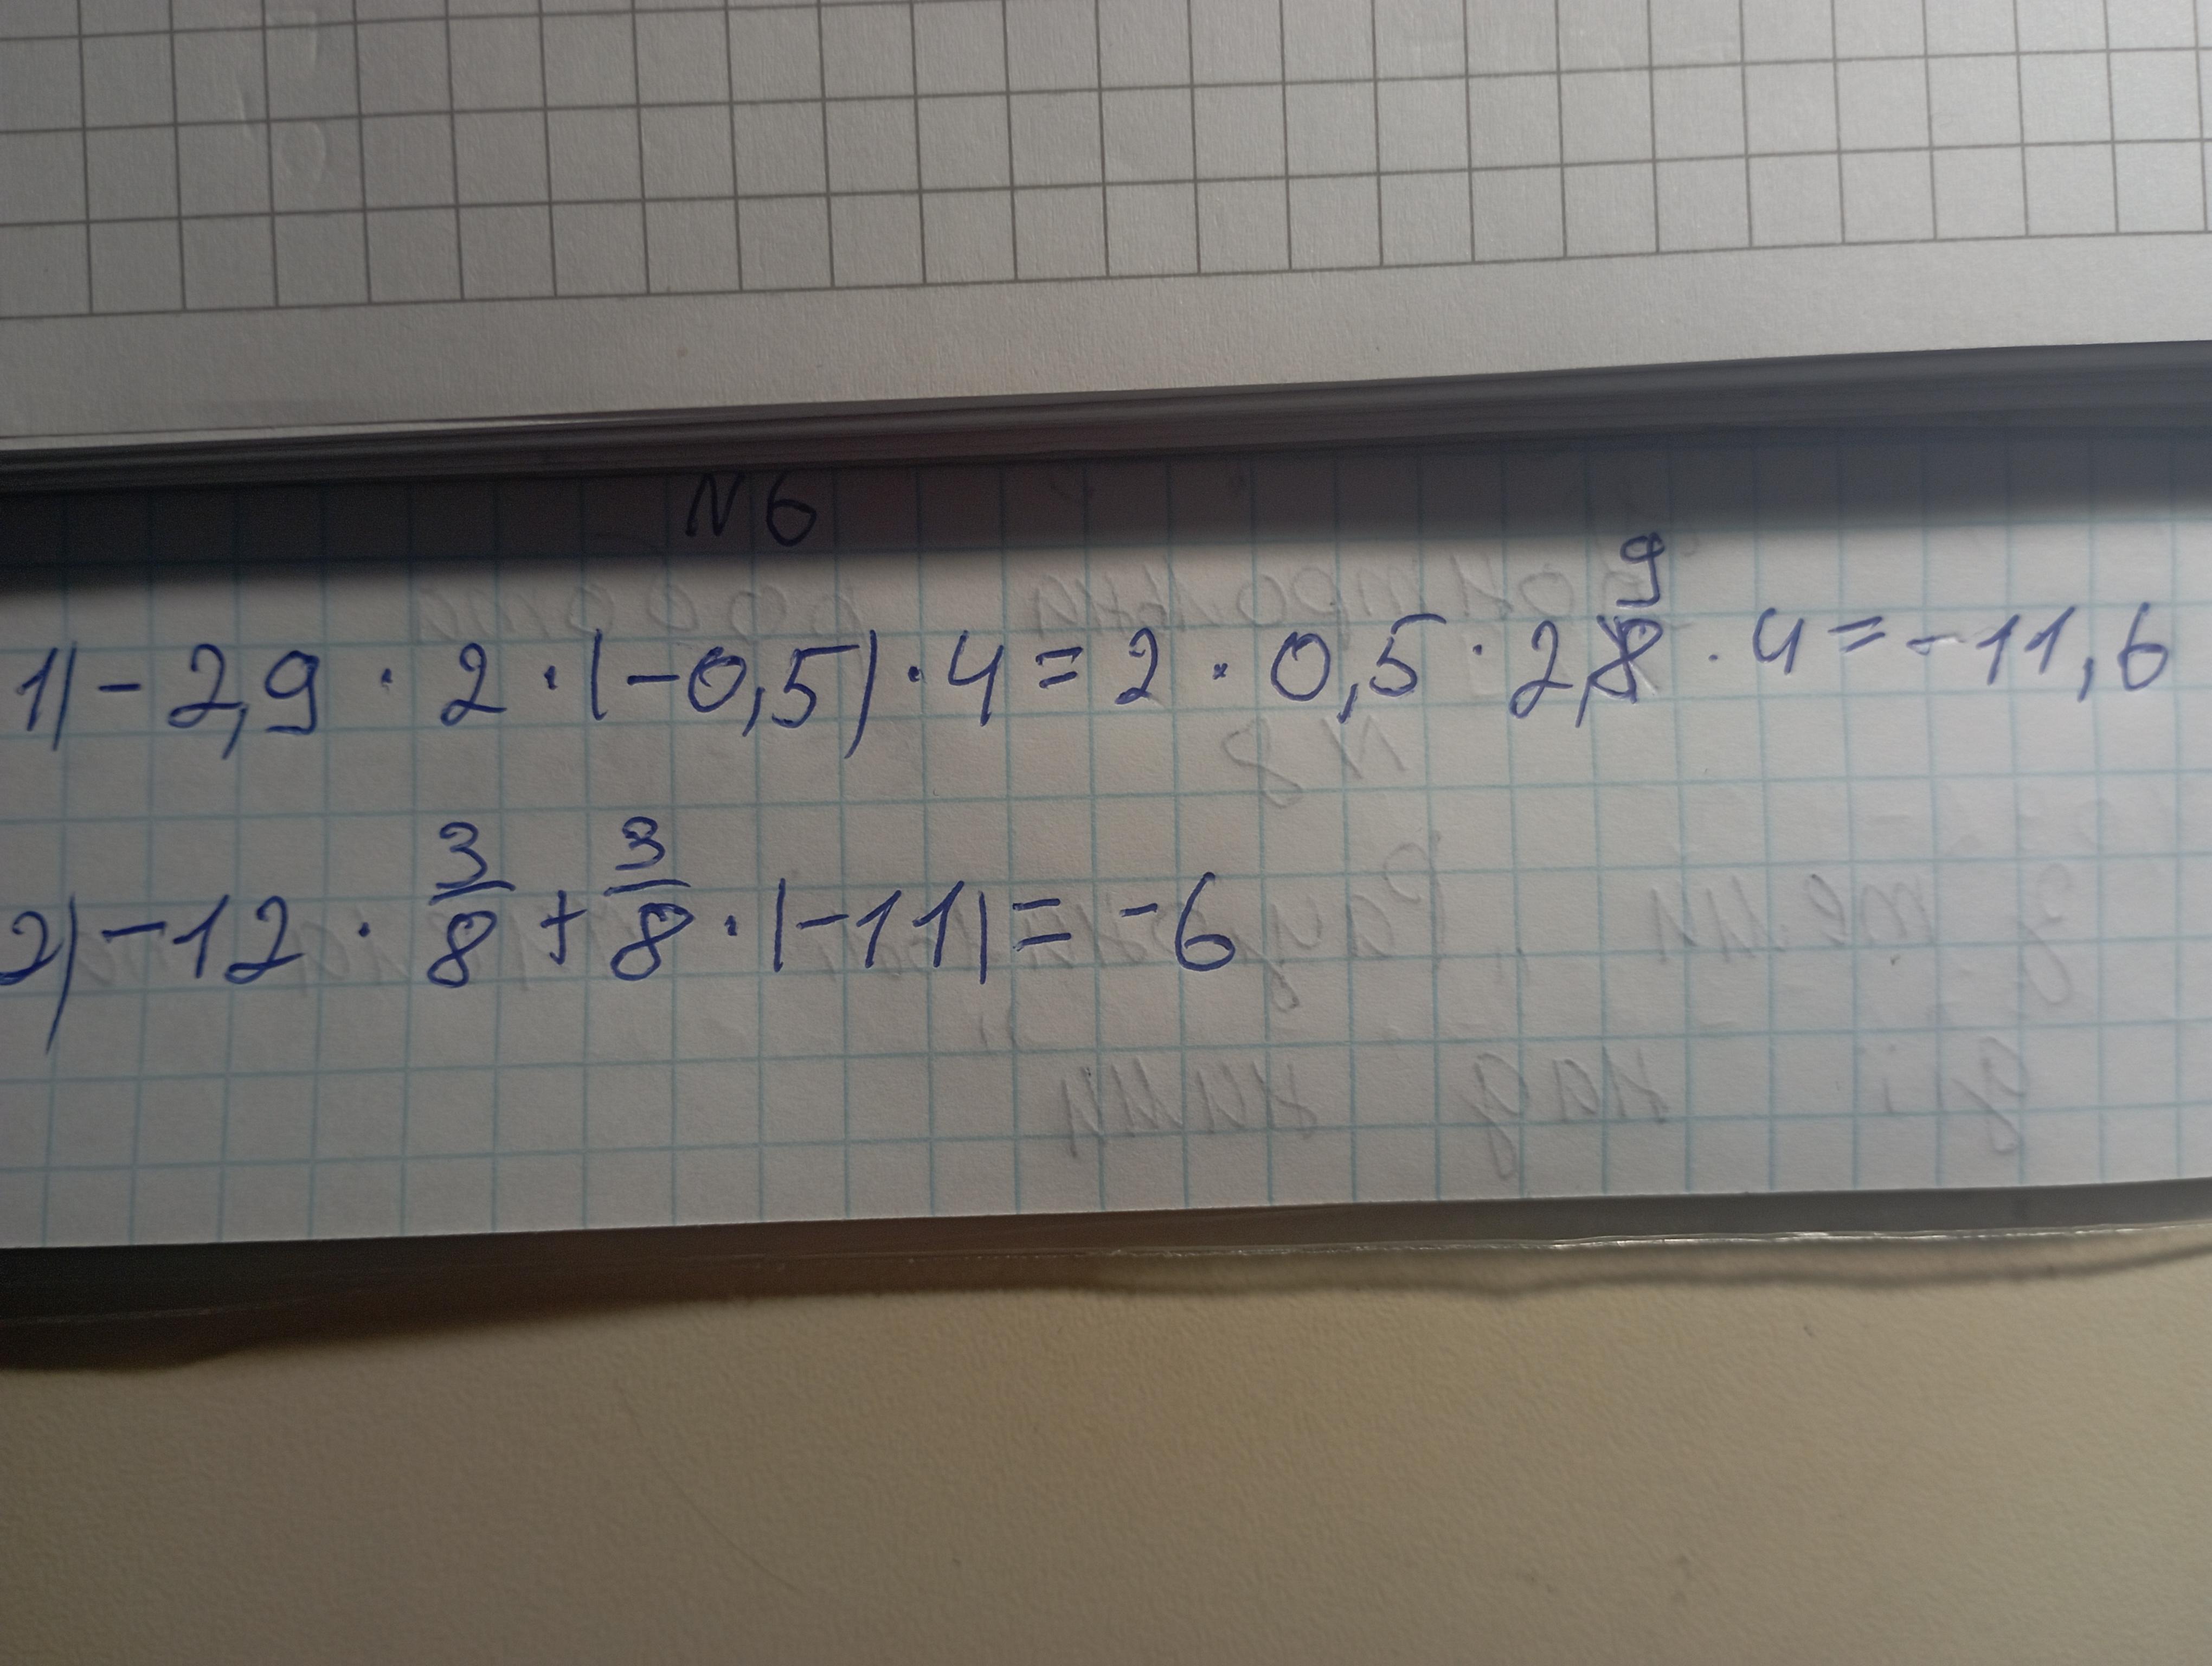 N6
1) -2,9 · 2 · (-0,5) · 4 = 2 · 0,5 · 2,9 · 4 = -11,6
2) -12 · 3/8 + 3/8 · (-11) = -6